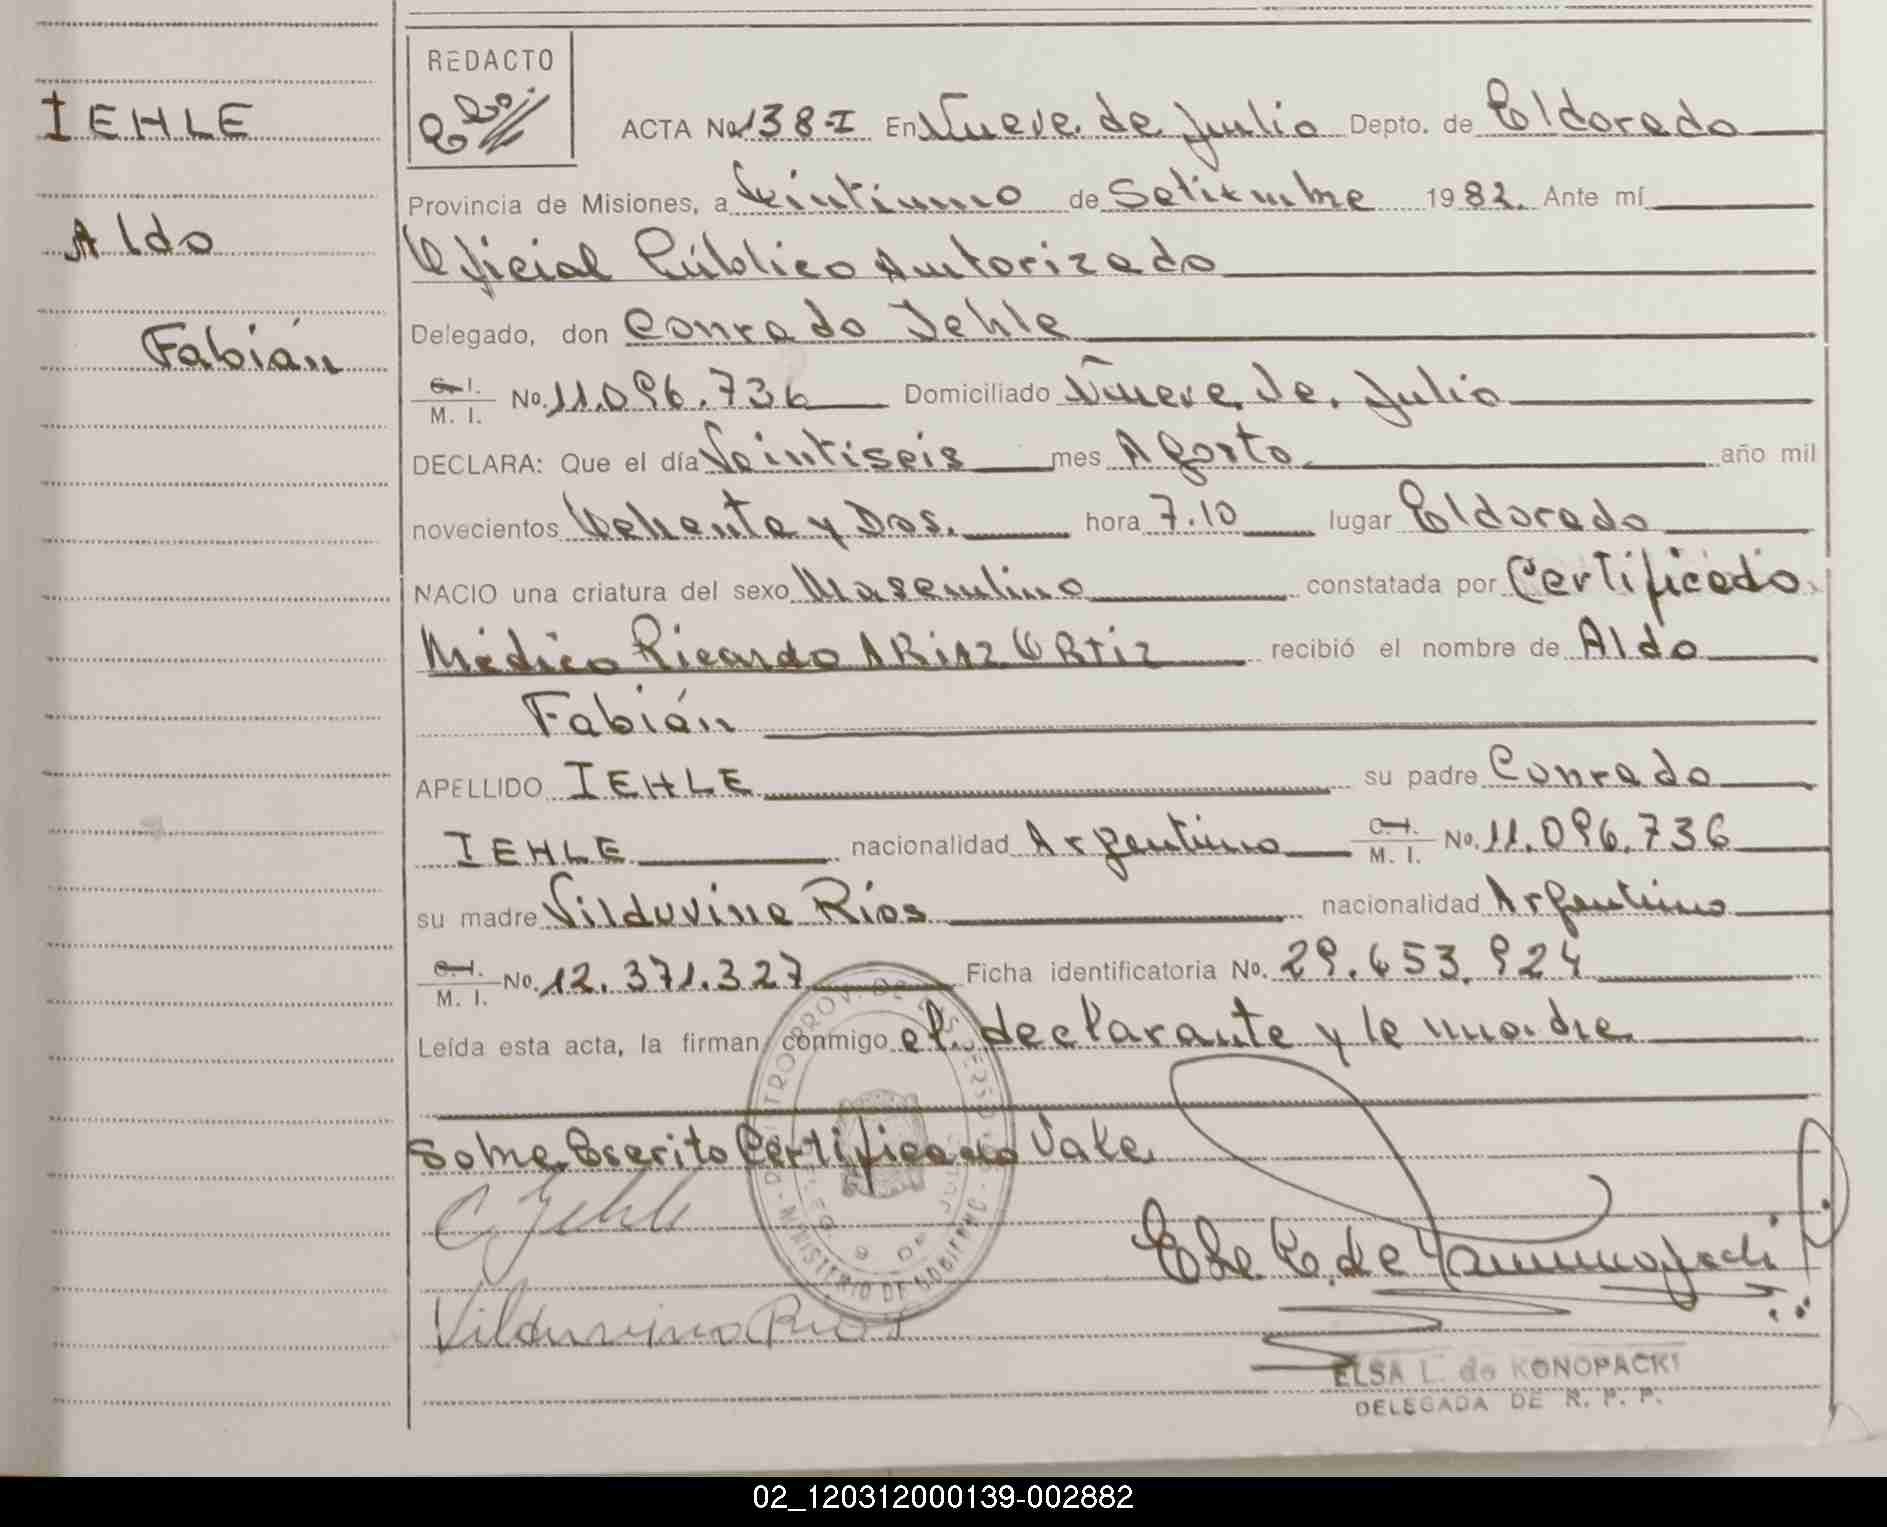 IEHLE
Aldo
Fabián
REDACTO
ACTA No. 138-I En Nueve de Julio Depto. de Eldorado
Provincia de Misiones, a Veintiuno de Setiembre 1982. Ante mí
Oficial Público Autorizado
Delegado, don Conrado Iehle
C. I. M. I. No. 11.096.736 Domiciliado Nueve de Julio
DECLARA: Que el día Veintiseis mes Agosto año mil
novecientos Ochenta y Dos. hora 7.10 lugar Eldorado
NACIO una criatura del sexo Masculino constatada por Certificado
Médico Ricardo ARiAZ ORtiz recibió el nombre de Aldo
Fabián
APELLIDO IEHLE su padre Conrado
IEHLE nacionalidad Argentino C. I. M. I. No. 11.096.736
su madre Vilduvina Ríos nacionalidad Argentino
C. I. M. I. No. 12.371.327 Ficha identificatoria No. 29.653.924
Leída esta acta, la firman conmigo el declarante y la madre
Sobre Escrito Certificado Vale
C. Iehle
Vilduvina Rios
MINISTERIO DE GOBIERNO
ELSA L. de KONOPACKI
DELEGADA DE R. P. P.
02_120312000139-002882